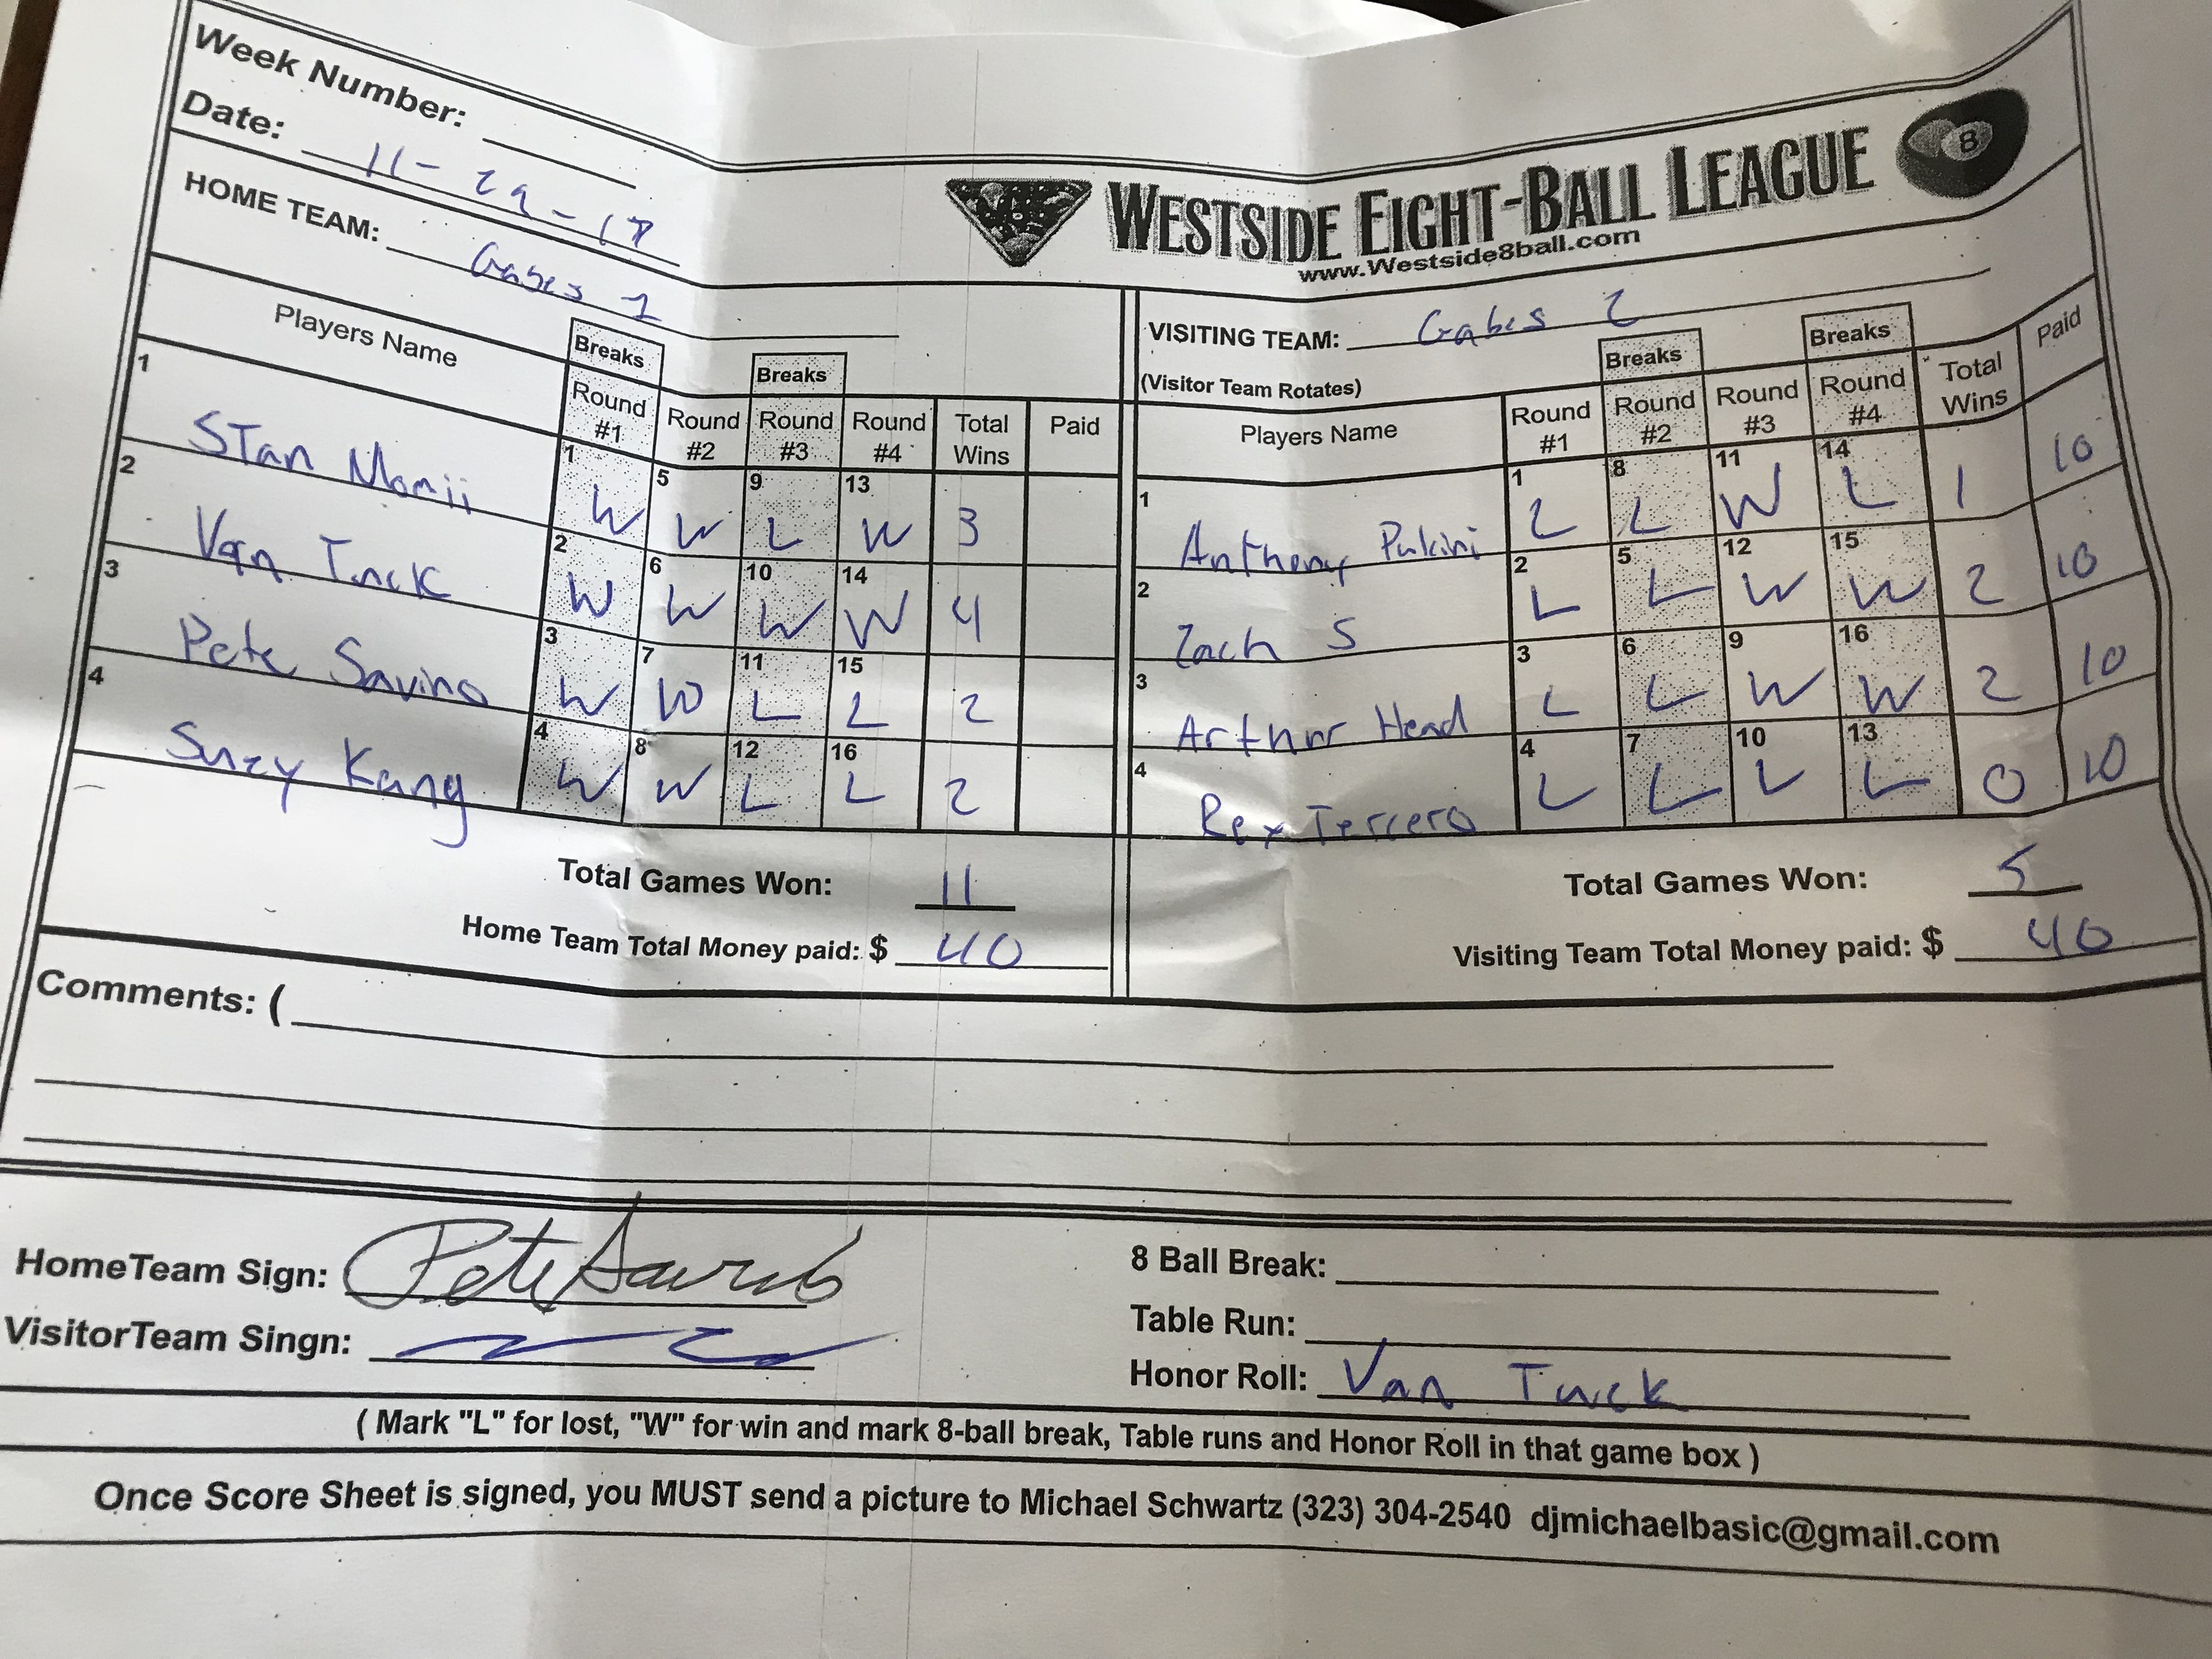 Week Number:
Date: 11-29-17
HOME TEAM: Gabes 1
WESTSIDE EIGHT-BALL LEAGUE 8
www.Westside8ball.com
VISITING TEAM: Gabes 2
(Visitor Team Rotates)
Breaks Breaks
Players Name Round #1 Round #2 Round #3 Round #4 Total Wins Paid
1 Stan Morii 1 W 5 W 9 L 13 W 3
2 Van Tuck 2 W 6 W 10 W 14 W 4
3 Pete Savino 3 W 7 W 11 L 15 L 2
4 Suzy Kang 4 W 8 W 12 L 16 L 2
Total Games Won: 11
Home Team Total Money paid: $ 40
Breaks Breaks
Players Name Round #1 Round #2 Round #3 Round #4 Total Wins Paid
1 Anthony Pukini 1 L 8 L 11 W 14 L 1 10
2 Zach S 2 L 5 L 12 W 15 W 2 10
3 Arthur Head 3 L 6 L 9 W 16 W 2 10
4 Rex Tercero 4 L 7 L 10 L 13 L 0 10
Total Games Won: 5
Visiting Team Total Money paid: $ 40
Comments: (
HomeTeam Sign: Pete Savino
VisitorTeam Singn:
8 Ball Break:
Table Run:
Honor Roll: Van Tuck
( Mark "L" for lost, "W" for win and mark 8-ball break, Table runs and Honor Roll in that game box )
Once Score Sheet is signed, you MUST send a picture to Michael Schwartz (323) 304-2540 djmichaelbasic@gmail.com